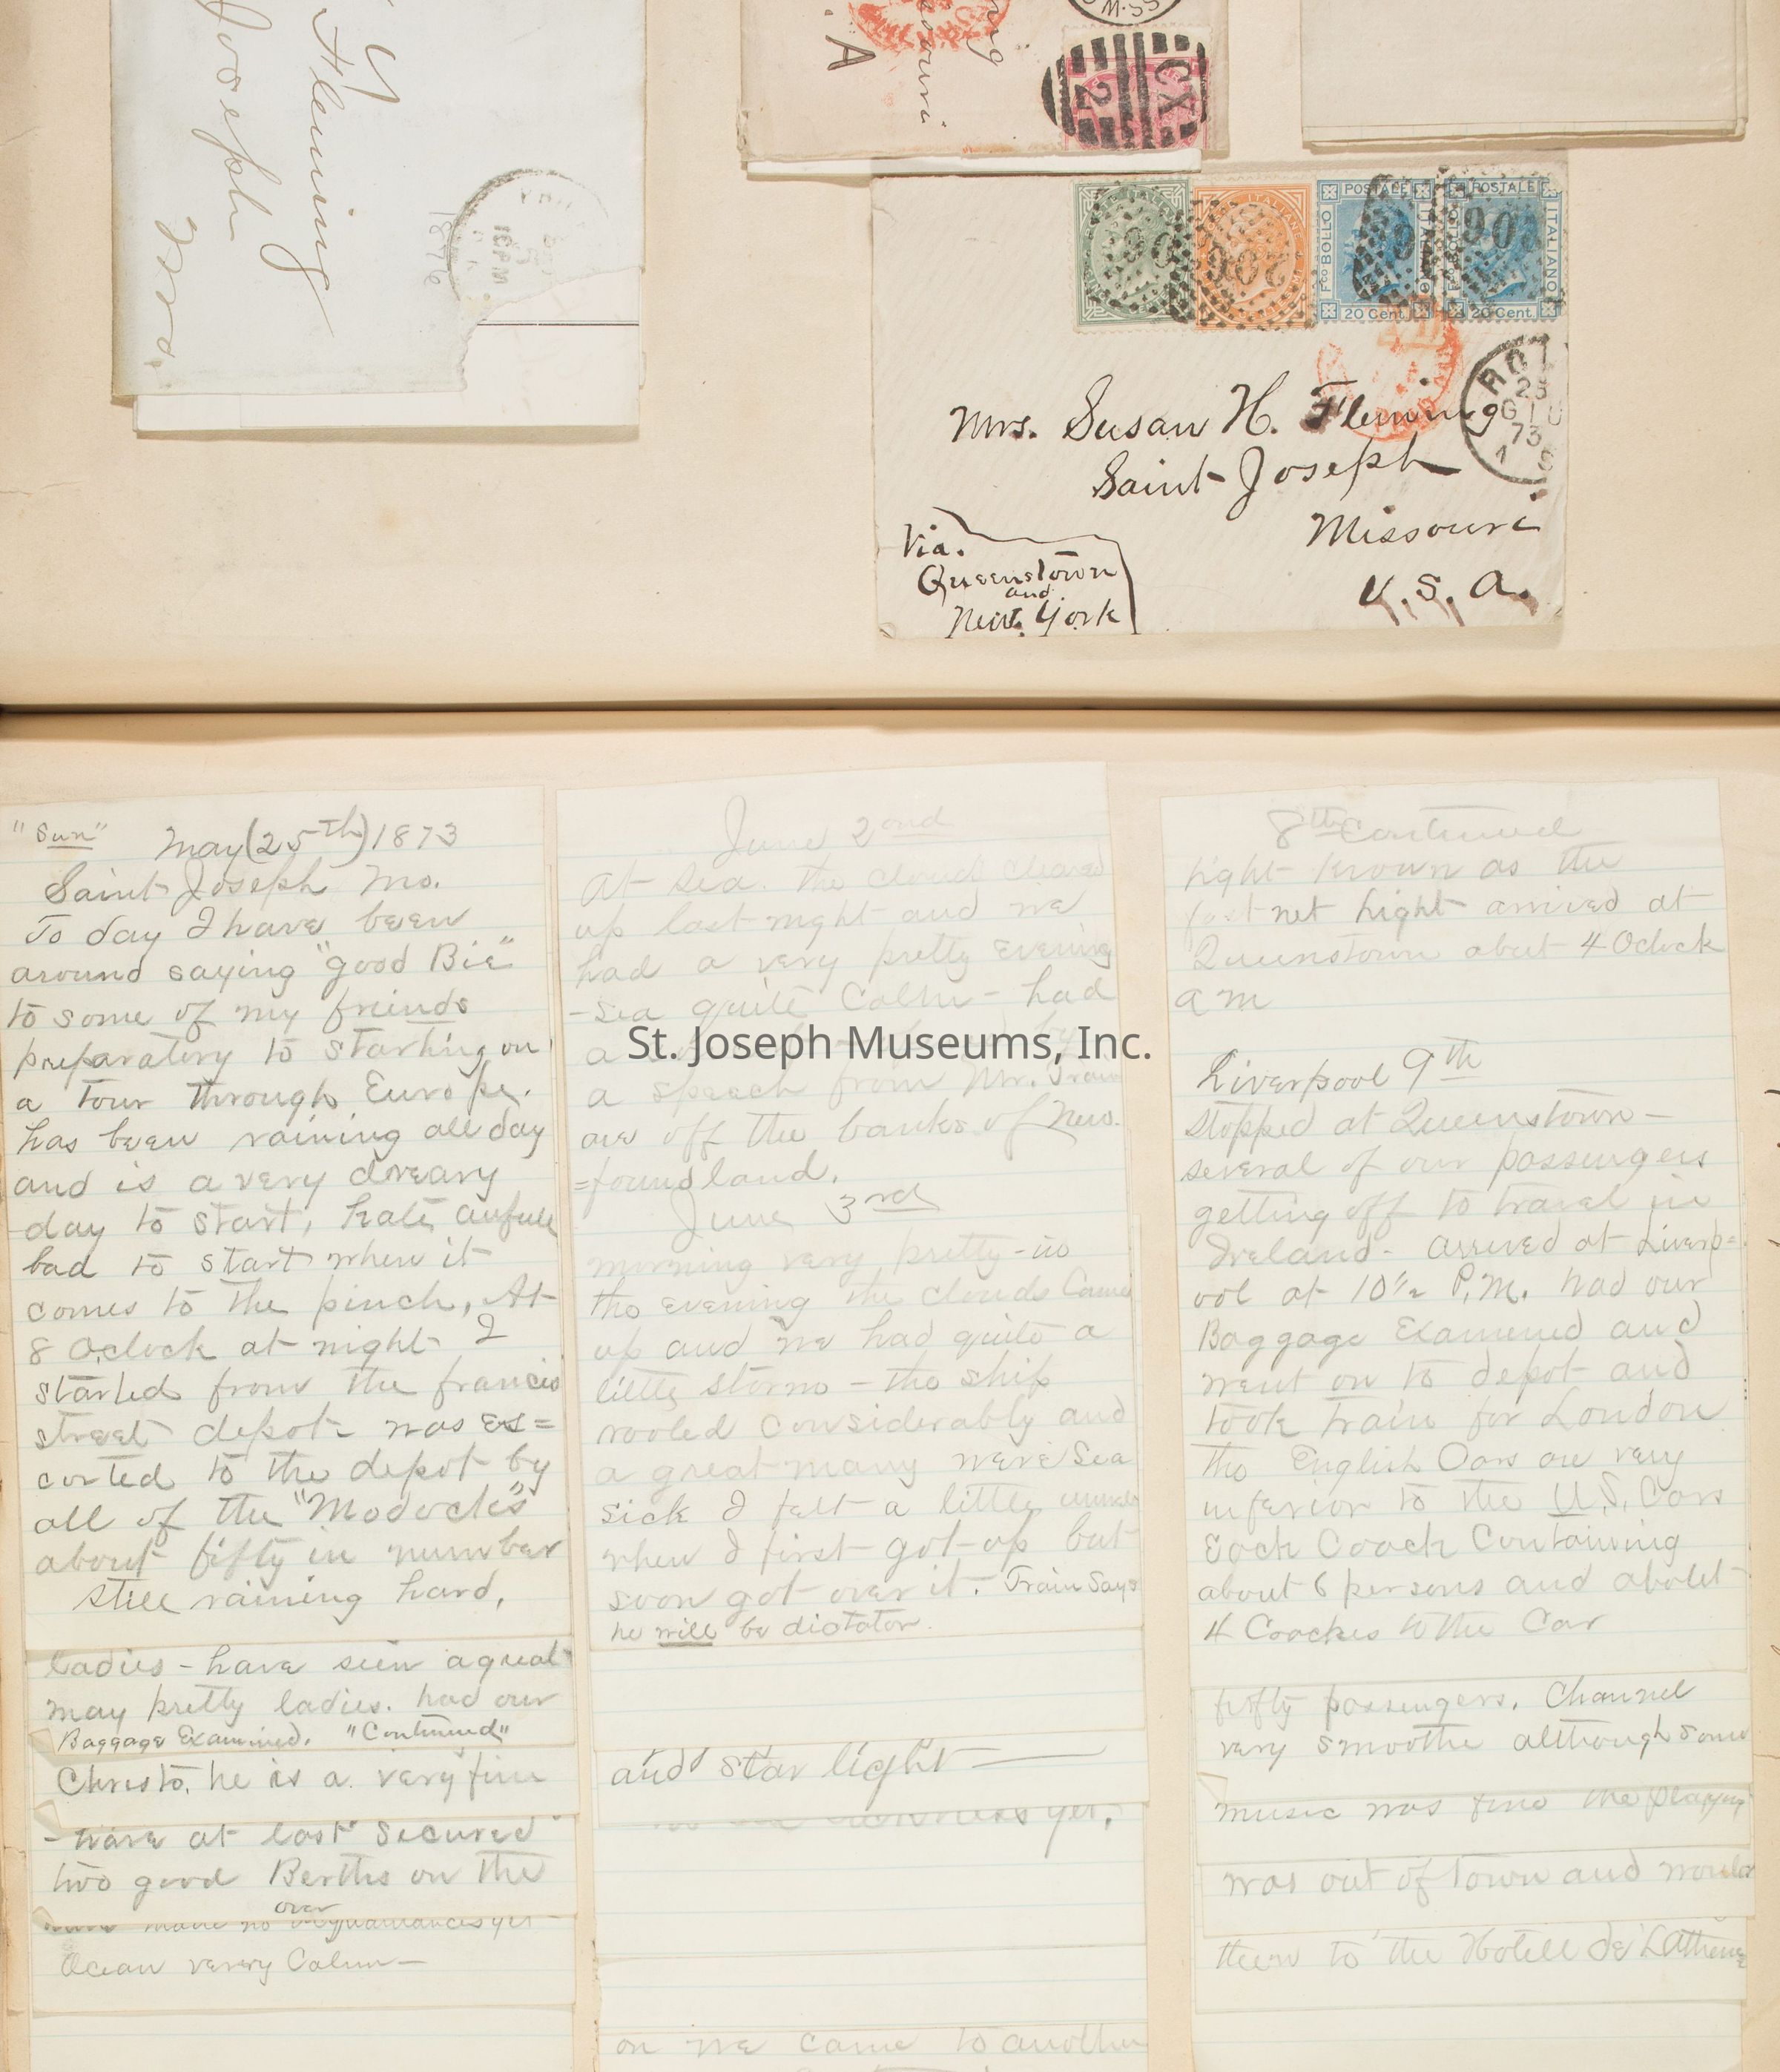 y
Fleming
Joseph
1876
A
 souri
CX
2
M·SS
POSTALE
POSTALE
Fco BOLLO
ITALIANO
20 Cent.
20 Cent.
206
Mrs. Susan H. Fleming
Saint Joseph
Missouri
U.S.A.
Via.
Queenstown
and
New York
23
GIU
73
"Sun" May (25th) 1873
Saint Joseph Mo.
To day I have been
around saying "good Bie"
to some of my freinds
preparatory to starting on
a tour through Europe.
has been raining all day
and is a very dreary
day to start, hate awfull
bad to start when it
comes to the pinch, At
8 Oclock at night I
started from the francis
street depot - was es=
corted to the depot by
all of the "Modock's"
about fifty in number
still raining hard,
ladies - have seen a great
may pretty ladies. had our
Baggage Examined. "Continued"
Christo, he is a very fine
- have at last secured
two good Berths on the
over
made no acquaintances yet
Ocean verery Calm -
June 2nd
At Sea. the clouds cleared
up last night and we
had a very pretty evening
- sea quite Calm - had
a
St. Joseph Museums, Inc.
a speech from Mr. Train
are off the banks of New
=foundland.
June 3rd
morning very pretty - in
the evening the clouds Came
up and we had quite a
little storm - the ship
rooled considerably and
a great many were Sea
sick I felt a little
when I first got up but
soon got over it. Train Says
he will be dictator.
and star light
yet.
on we came to another
8th Continued
light known as the
fast net Light arrived at
Queenstown about 4 Oclock
a m
Liverpool 9th
Stopped at Queenstown -
several of our passengers
getting off to travel in
Ireland - arrived at Liverp=
ool at 10½ P.M. had our
Baggage Examined and
went on to depot and
took train for London
the English Cars are very
inferior to the U.S. Cars
Each Coach Containing
about 6 persons and about
4 Coaches to the Car
fifty passengers. Channel
very smoothe although some
music was fine the playing
was out of town and would
them to the Hotell de L'Athenee